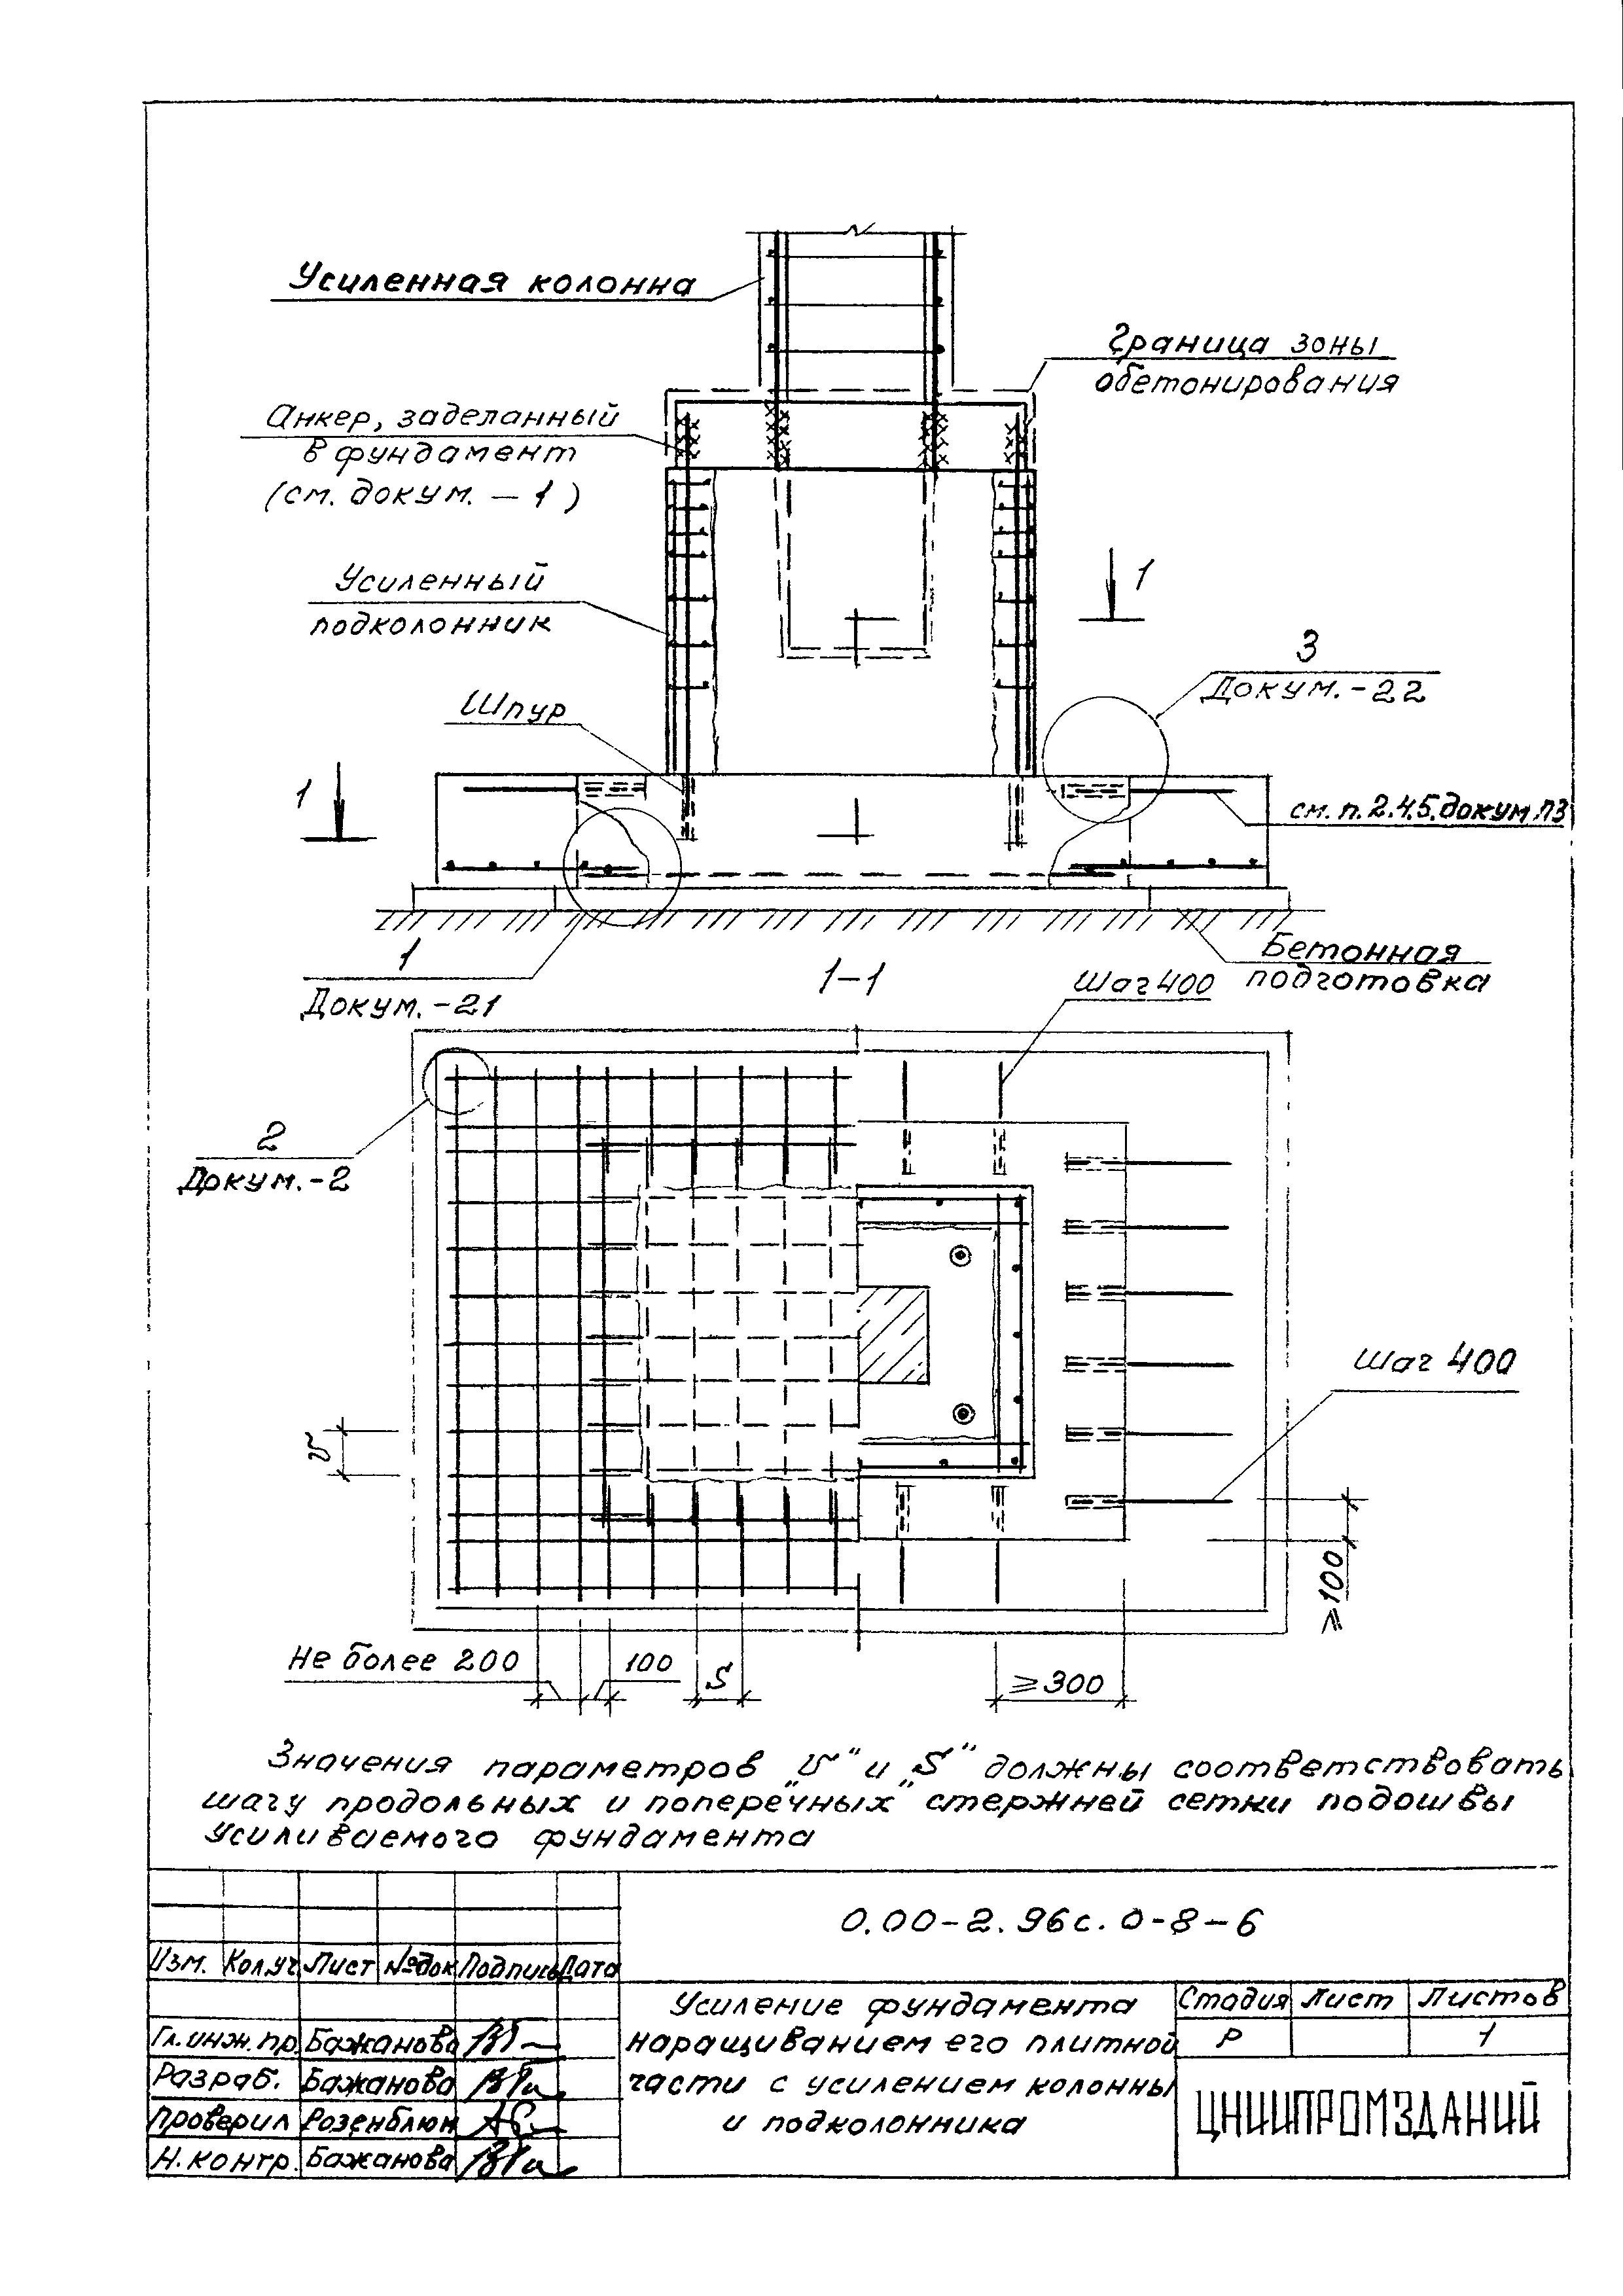 Усиленная колонна
Граница зоны
обетонирования
Анкер, заделанный
в фундамент
(см. докум. – 1)
Усиленный
подколонник
1
3
Докум.-22
Шпур
1
см. п. 2.4.5. докум. ПЗ
1
Докум.-21
1-1
Шаг 400
Бетонная
подготовка
2
Докум.-2
Шаг 400
v
≥100
Не более 200
100
S
≥300
Значения параметров „v“ и „S“ должны соответствовать
шагу продольных и поперечных стержней сетки подошвы
усиливаемого фундамента
0.00-2.96с.0-8-6
Изм. Кол.уч Лист №док Подпись Дата
Усиление фундамента
наращиванием его плитной
части с усилением колонны
и подколонника
Стадия Лист Листов
Р 1
Гл. инж. пр. Бажанова
Разраб. Бажанова
Проверил Розенблюм
Н. контр. Бажанова
ЦНИИПРОМЗДАНИЙ